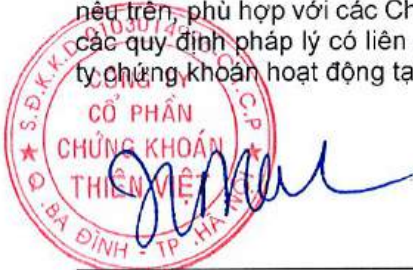 nêu trên, phù hợp với các Ch
các quy định pháp lý có liên
ty chứng khoán hoạt động tạ
S.Đ.K.K.D C.T.C.P
CÔNG TY
CỔ PHẦN
CHỨNG KHOÁN
THIÊN VIỆT
Q. BA ĐÌNH - TP. HÀ NỘI